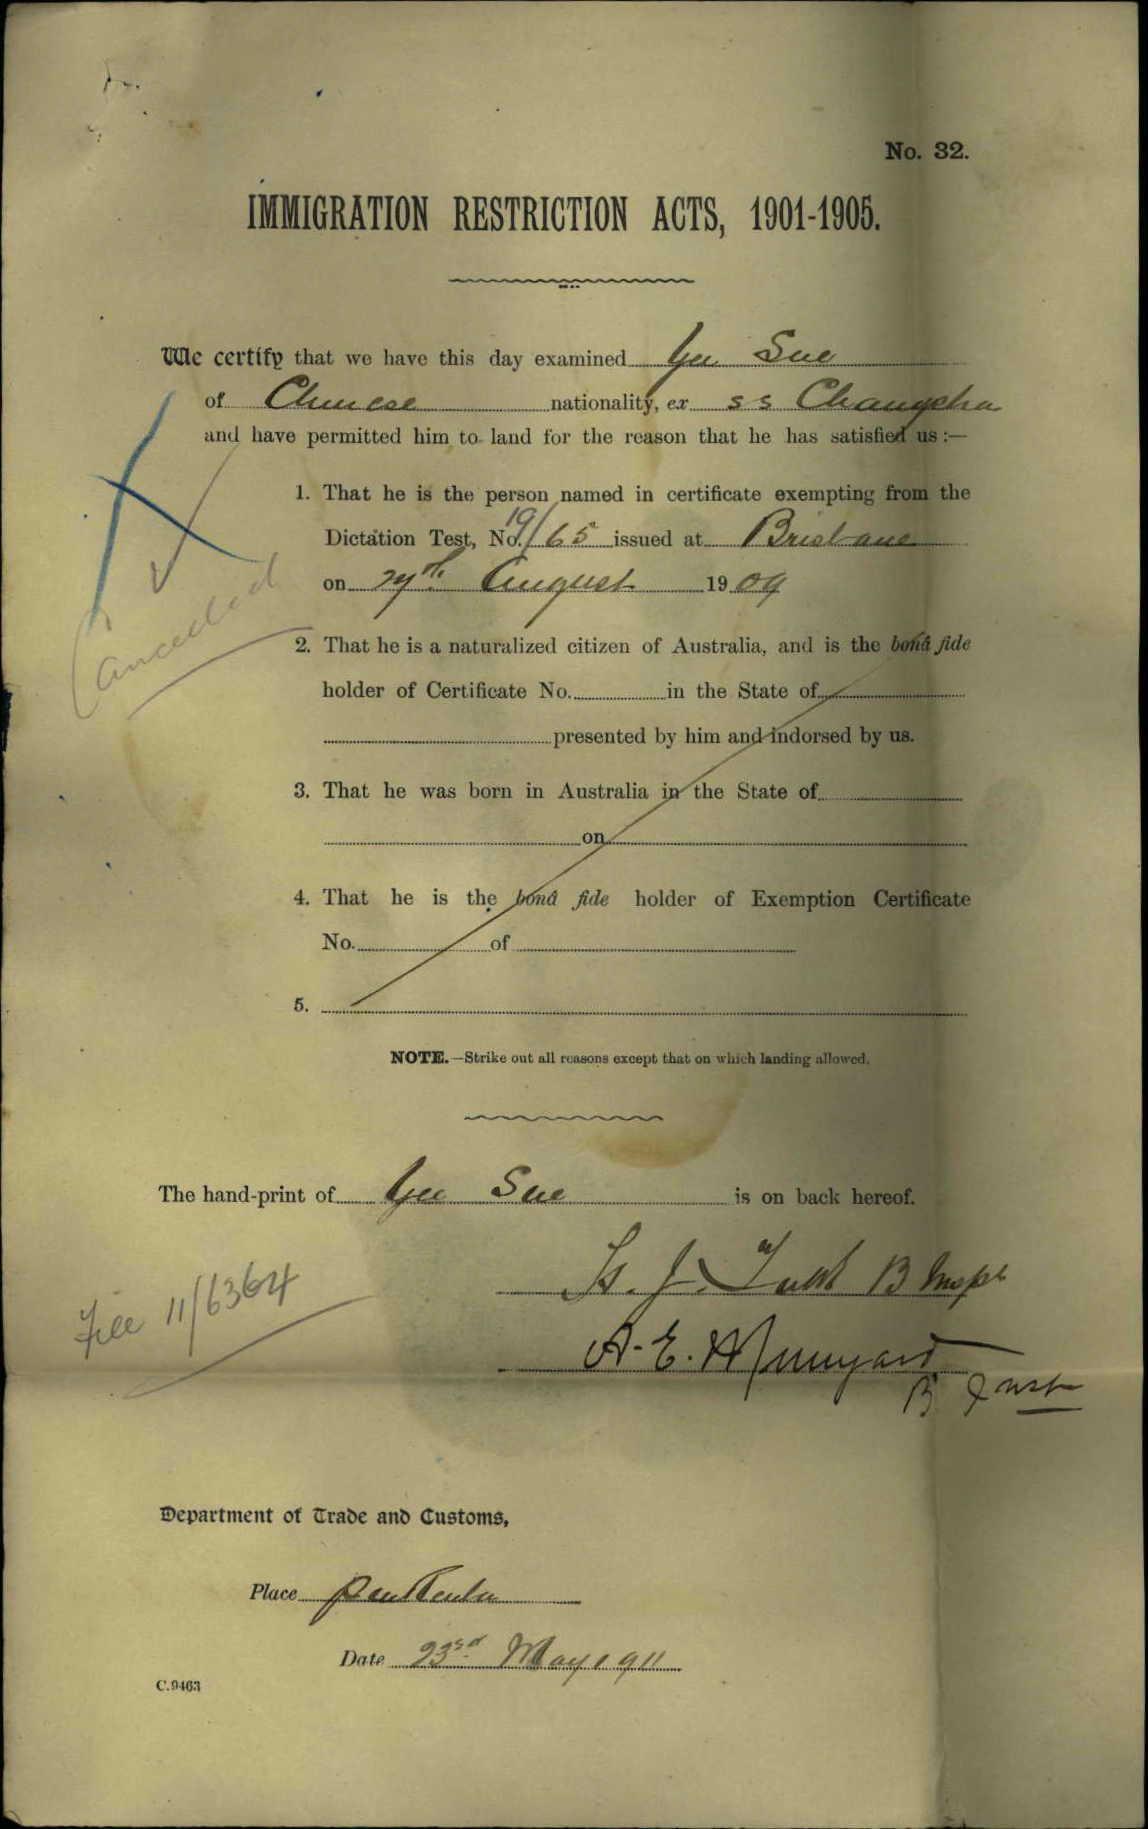 No. 32.
IMMIGRATION RESTRICTION ACTS, 1901-1905.
We certify that we have this day examined Yee Sue
of Chinese nationality, ex s s Changsha
and have permitted him to land for the reason that he has satisfied us :—
1. That he is the person named in certificate exempting from the
Dictation Test, No. 19/65 issued at Brisbane
on August 1909
Cancelled
2. That he is a naturalized citizen of Australia, and is the bonâ fide
holder of Certificate No. in the State of
presented by him and indorsed by us.
3. That he was born in Australia in the State of
on
4. That he is the bonâ fide holder of Exemption Certificate
No. of
5.
NOTE.—Strike out all reasons except that on which landing allowed.
The hand-print of Yee Sue is on back hereof.
File 11/6364
J. B Inspr
A. E.
B
Department of Trade and Customs,
Place
Date 23rd May 1911
C.9463